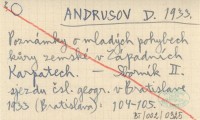 ANDRUSOV D. 1933.
Poznámky o mladých pohybech
kůry zemské v Západních
Karpatech. — Sborník II.
sjezdu čsl. geogr. v Bratislave
1933 (Bratislava): 104-105.
BT/002/0325